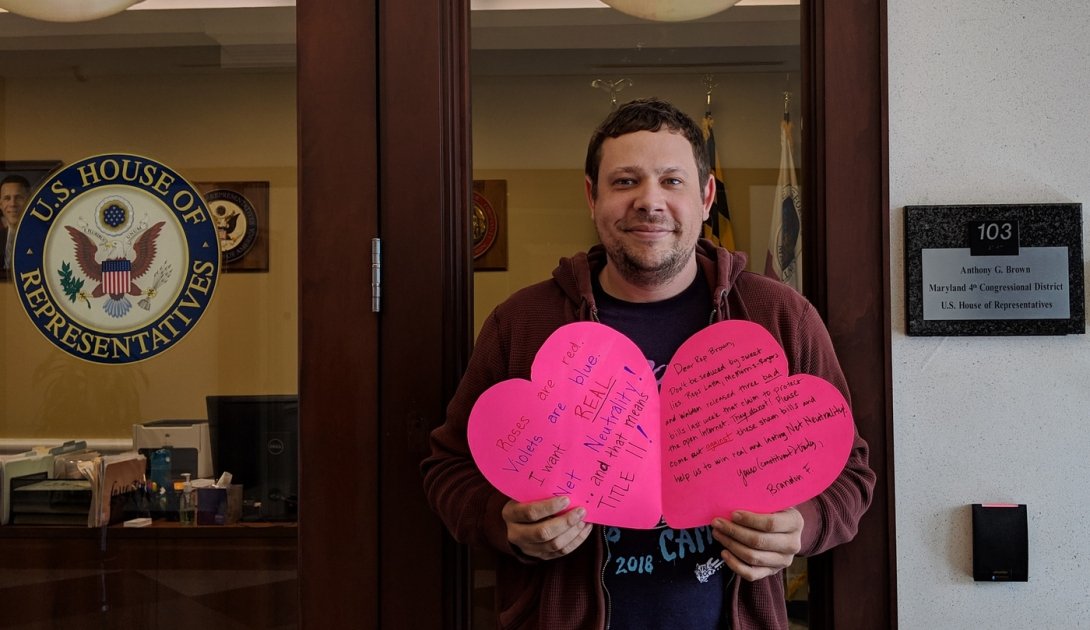 U.S. HOUSE OF
REPRESENTATIVES
Roses are red.
Violets are blue.
I want REAL
Net Neutrality!
...and that means
TITLE II!!
Dear Rep Brown,
Don't be seduced by sweet
lies. Reps Latta, McMorris-Rogers
and Walden released three bad
bills last week that claim to protect
the open internet. They don't! Please
come out against these sham bills and
help us to win real and lasting Net Neutrality.
Yours (constituent) truly,
Brandon F
2018 CAM
103
Anthony G. Brown
Maryland 4th Congressional District
U.S. House of Representatives
DELL